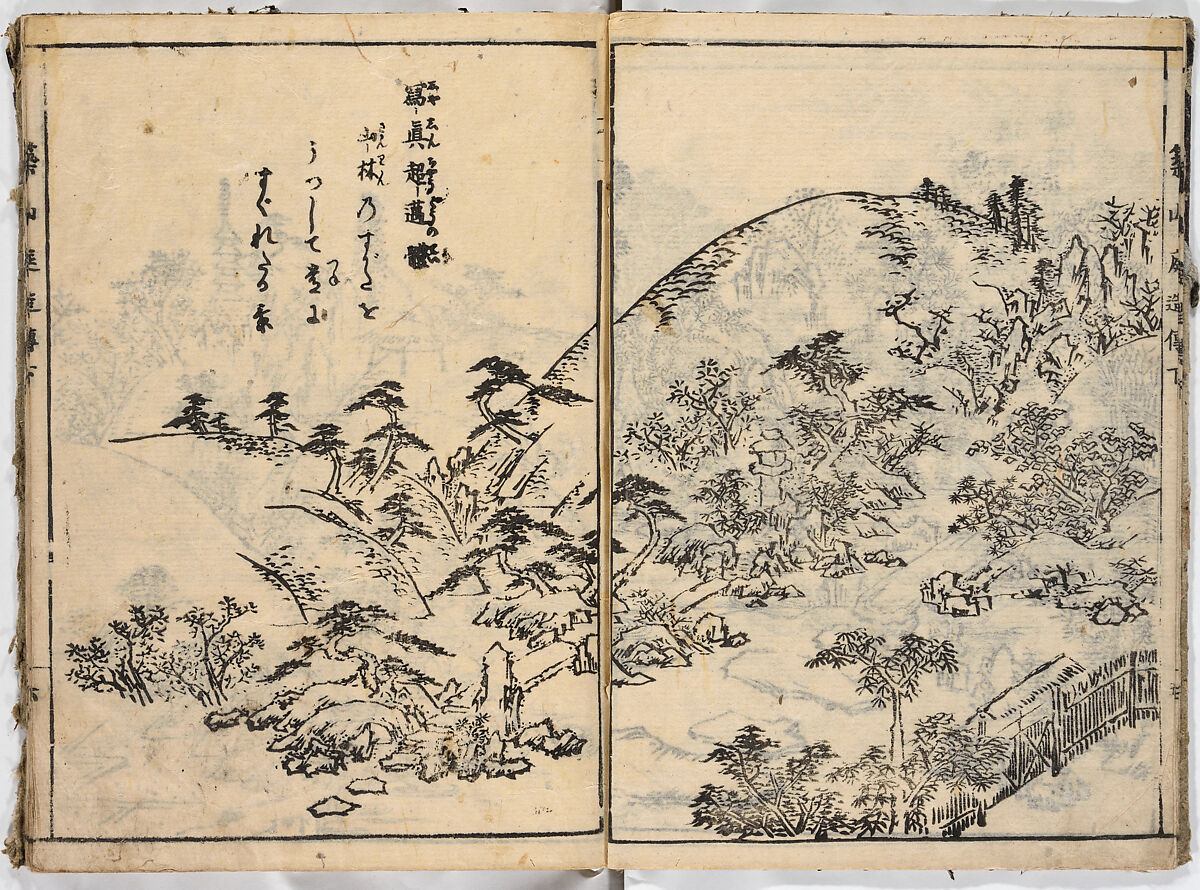 築山庭造傳下
寫真超邁の體
山林乃すがたを
うつして常に
すぐれたる景
築山庭造傳下